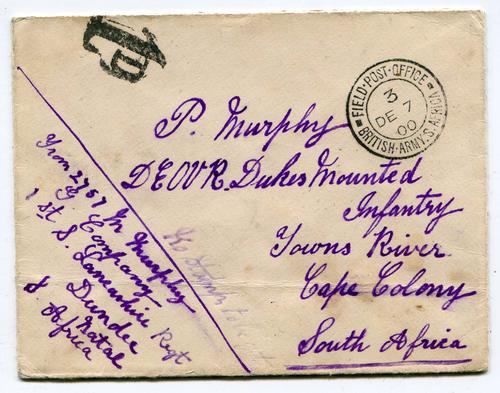 1D
FIELD·POST·OFFICE
3
DE 7
00
BRITISH·ARMY·S.AFRICA
P. Murphy
DEOVR. Dukes Mounted
Infantry
Towns River
Cape Colony
South Africa
From 2767 M Murphy
G Company
1st S. Lancashire Regt
Dundee
Natal
S Africa